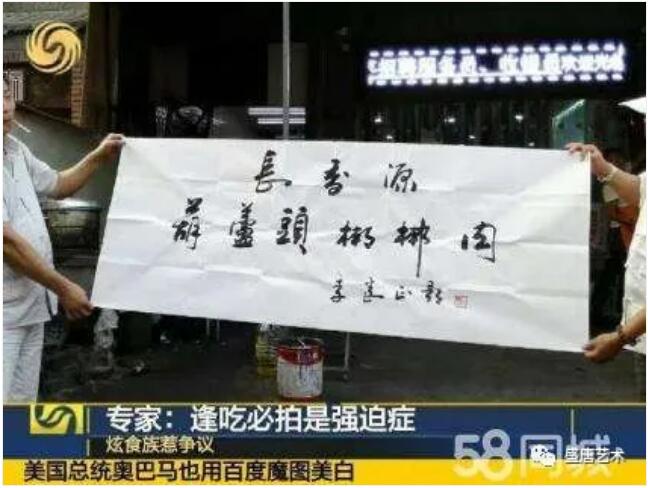 招聘服务员、收银员欢迎光临
長香源
葫蘆頭梆梆肉
李建正題
专家：逢吃必拍是强迫症
炫食族惹争议
58同城
盛唐艺术
美国总统奥巴马也用百度魔图美白